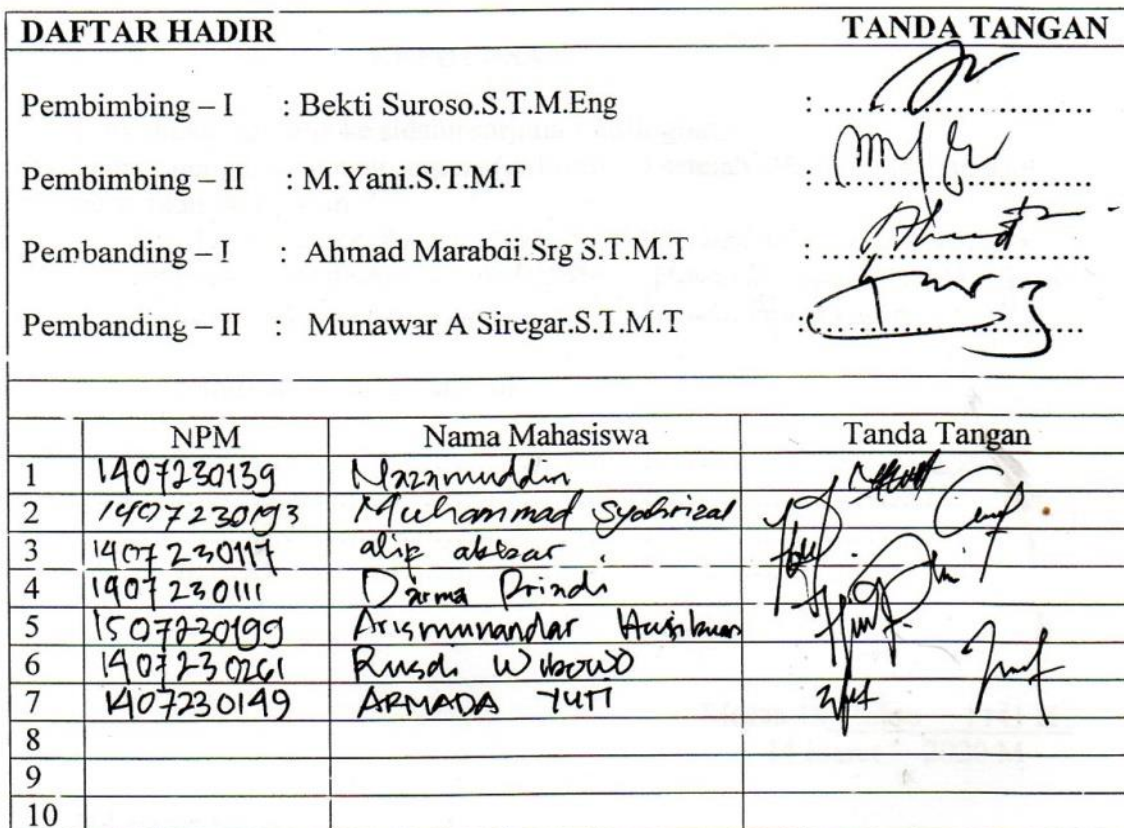 DAFTAR HADIR TANDA TANGAN
Pembimbing – I : Bekti Suroso.S.T.M.Eng : ....................
Pembimbing – II : M.Yani.S.T.M.T : ....................
Pembanding – I : Ahmad Marabdi.Srg S.T.M.T : ....................
Pembanding – II : Munawar A Siregar.S.T.M.T : ....................
NPM Nama Mahasiswa Tanda Tangan
1 1407230139 Nazamuddin
2 1407230193 Muhammad Syahrizal
3 1407230117 alip akbar
4 1407230111 Darma
5 1507230199 Arismunandar Hasibuan
6 1407230261 Rusdi Wibowo
7 1407230149 ARMADA YUTI
8
9
10